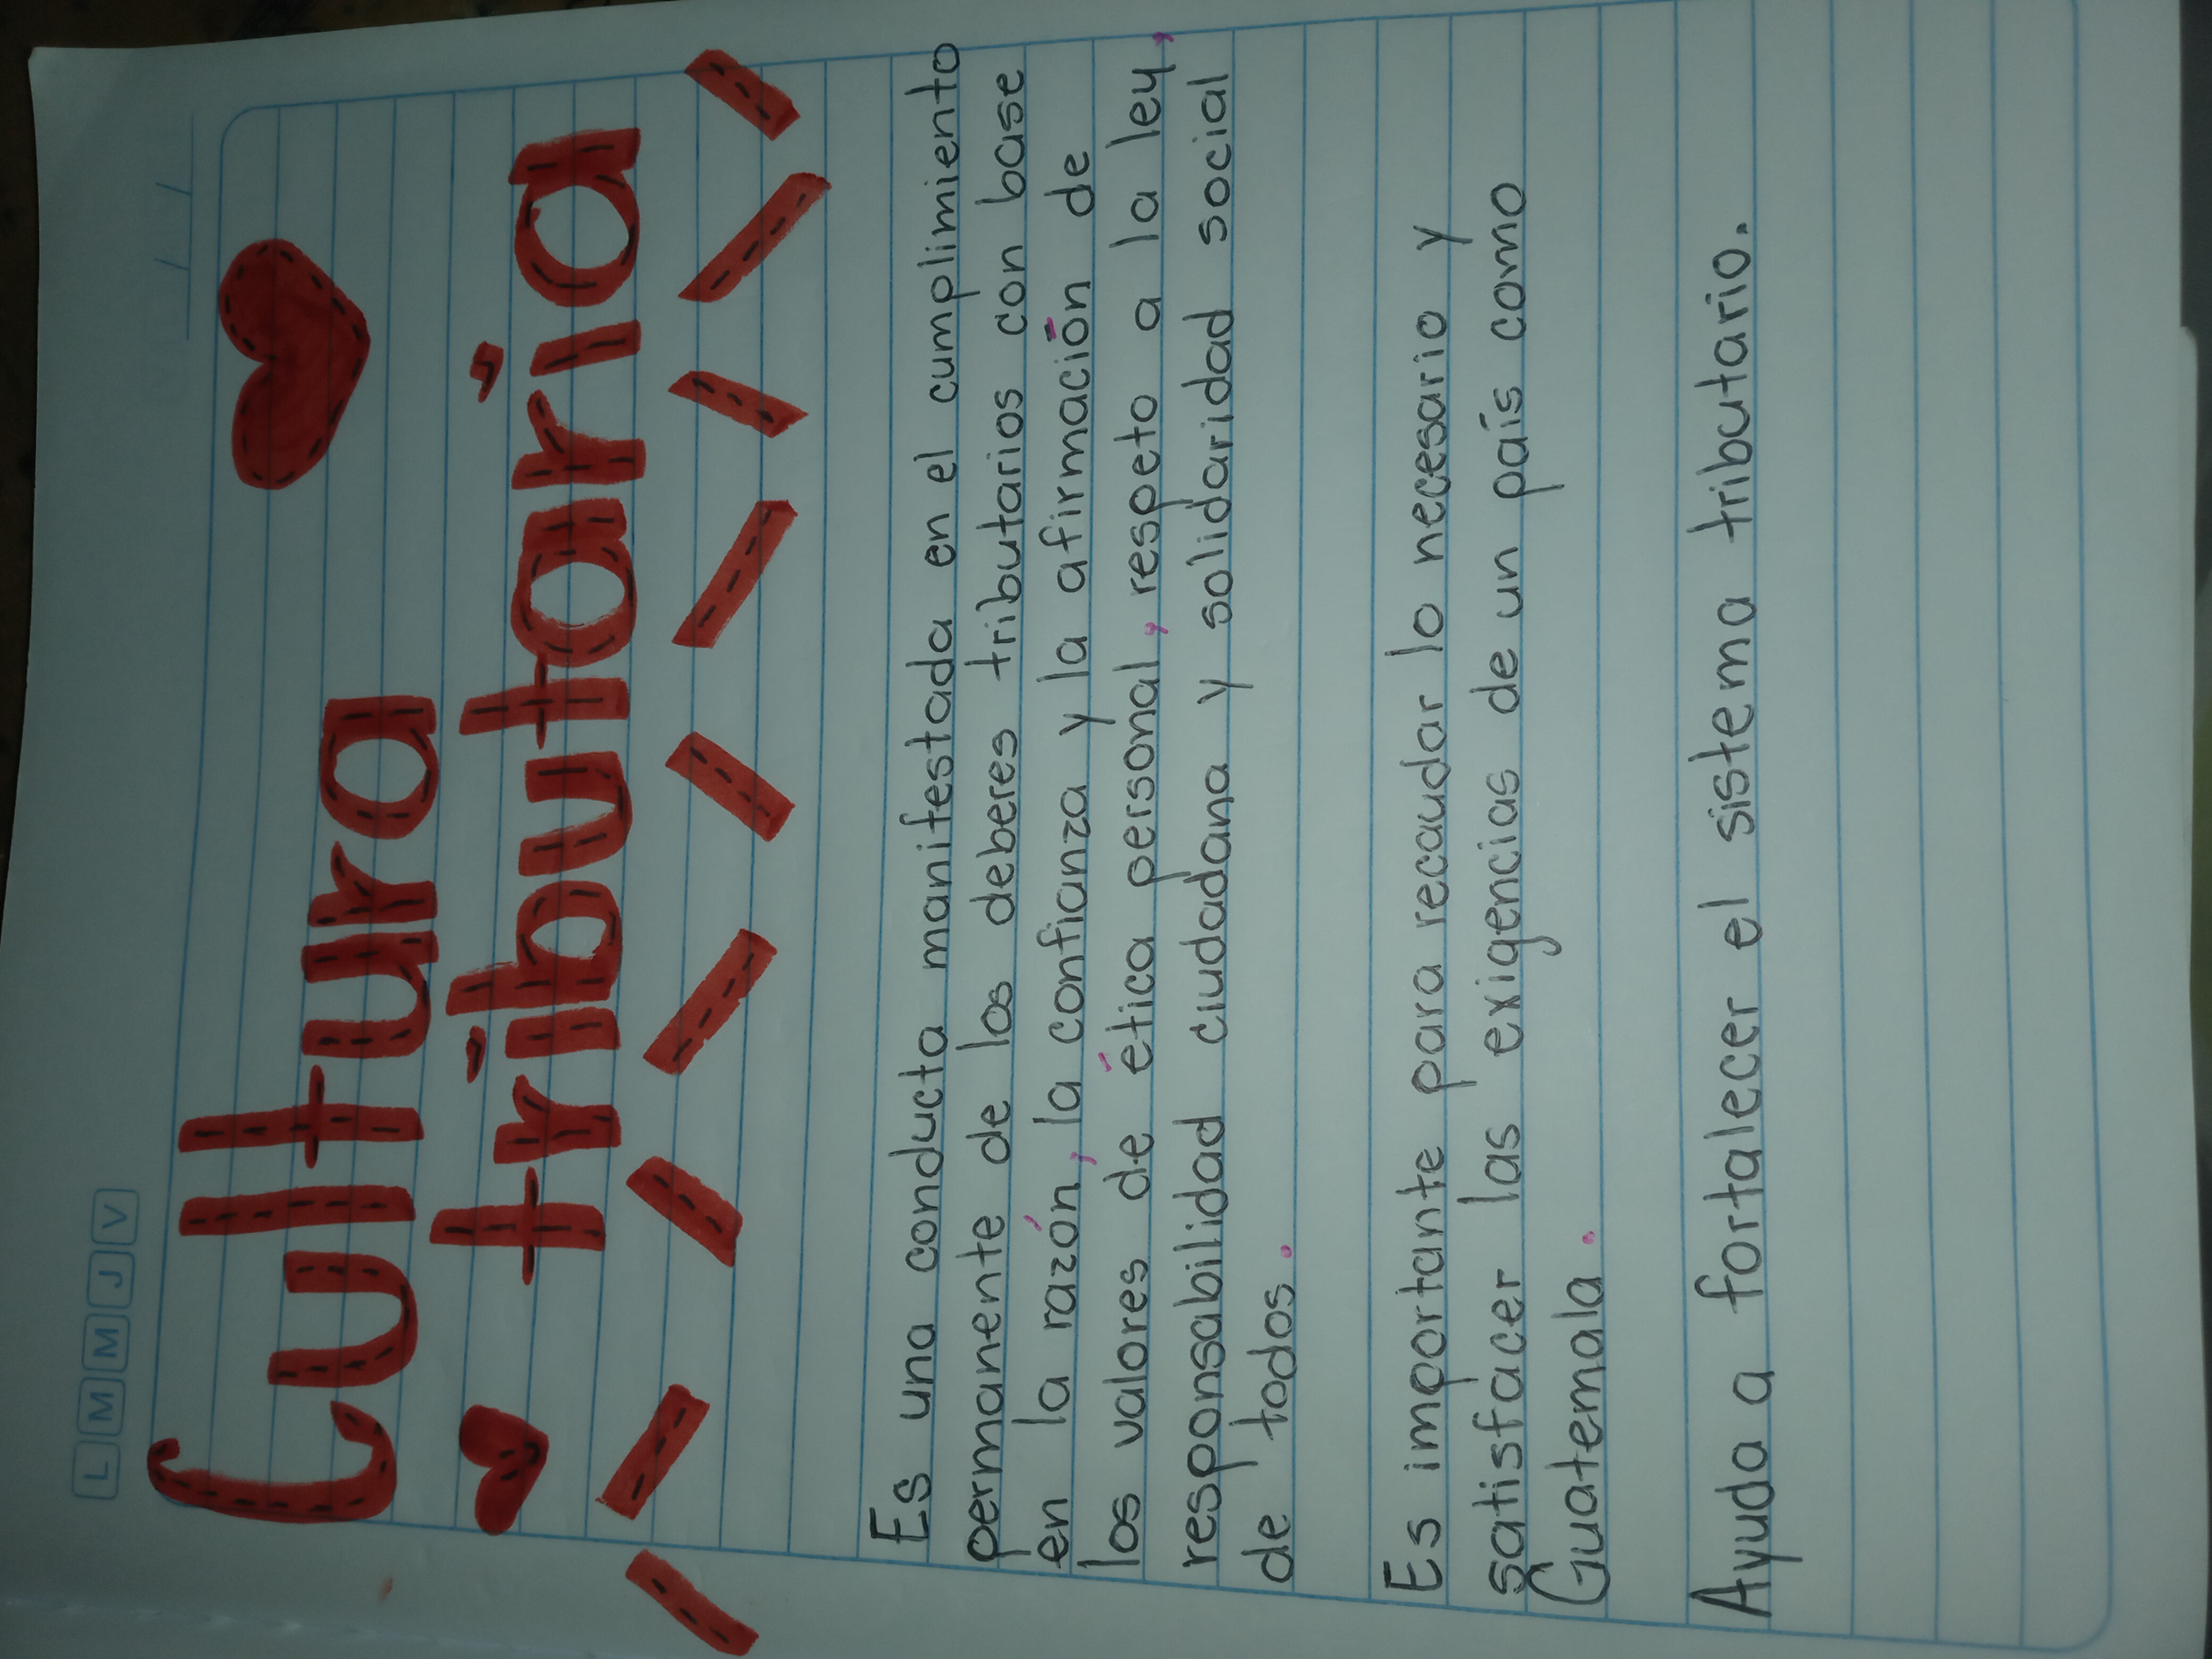 L M M J V
Cultura
tributaria
Es una conducta manifestada en el cumplimiento
permanente de los deberes tributarios con base
en la razón, la confianza y la afirmación de
los valores de ética personal, respeto a la ley,
responsabilidad ciudadana y solidaridad social
de todos.
Es importante para recaudar lo necesario y
satisfacer las exigencias de un país como
Guatemala.
Ayuda a fortalecer el sistema tributario.